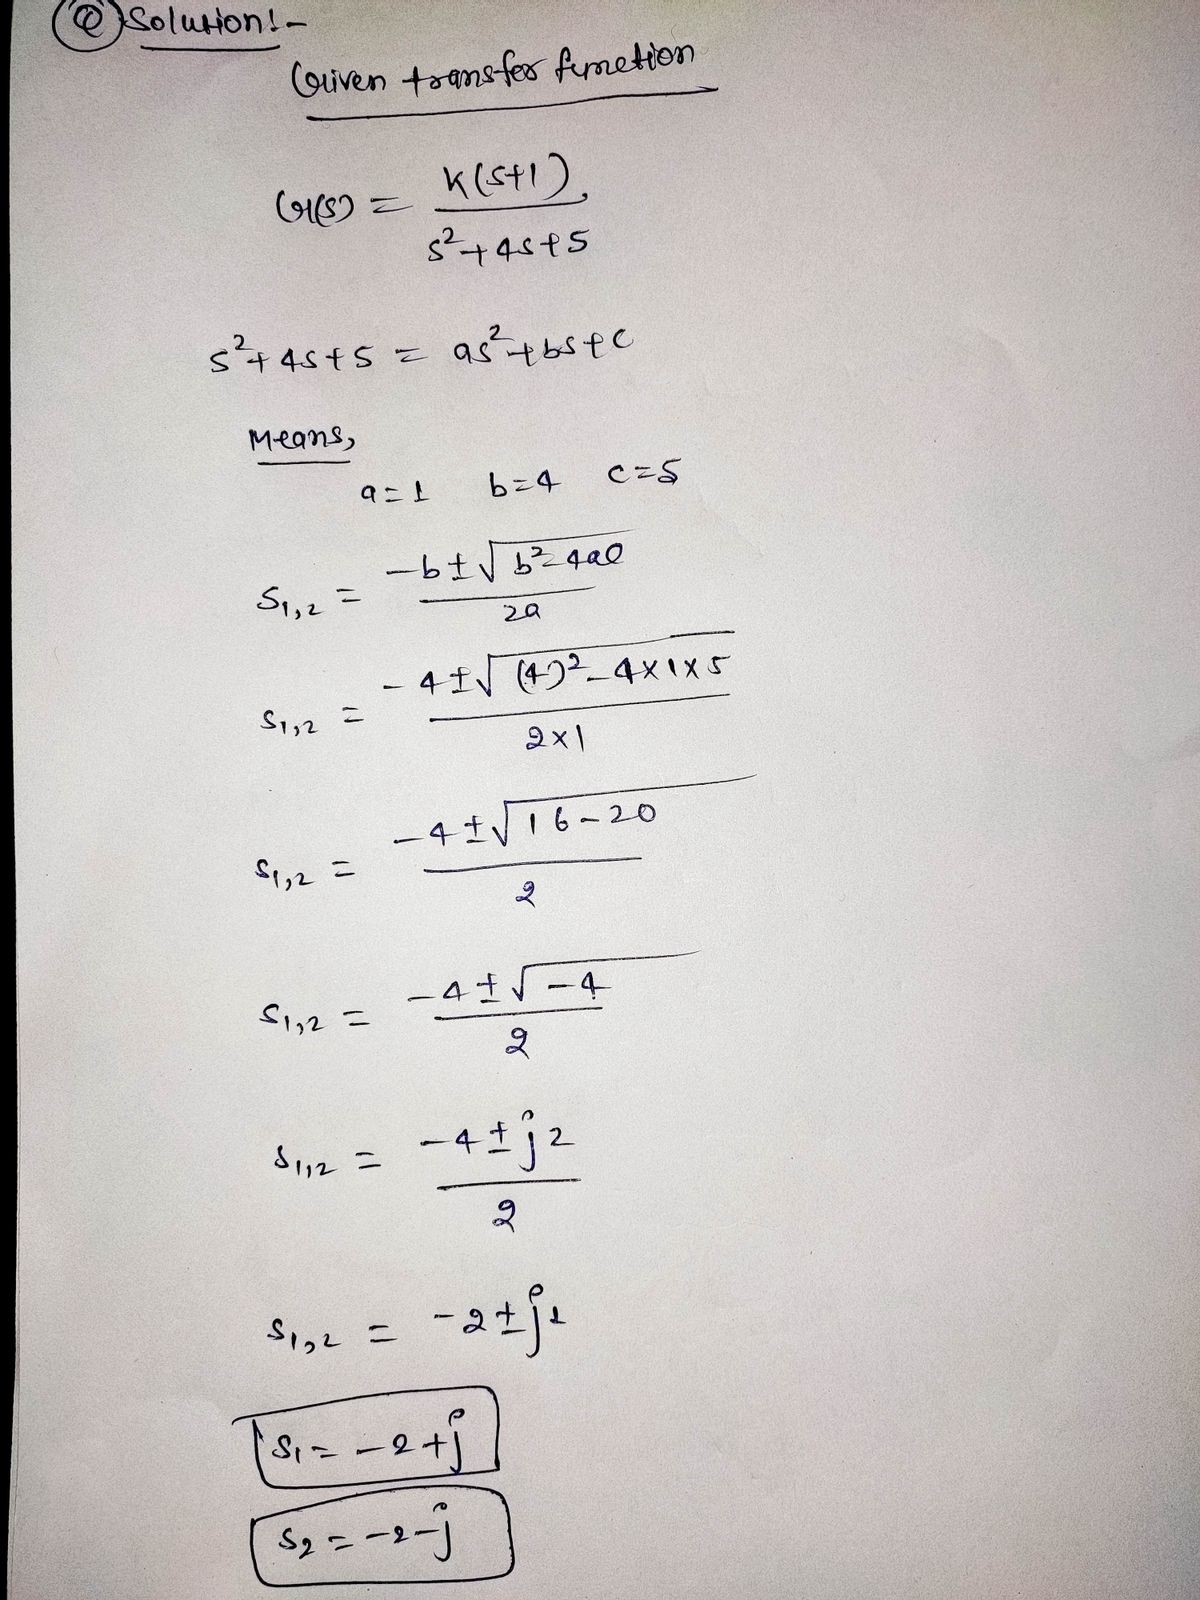 Q Solution:-
Given transfer function
G(s) = K(s+1) / s²+4s+5
s²+4s+5 = as²+bs+c
Means,
a=1 b=4 c=5
S1,2 = -b±√b²-4ac / 2a
S1,2 = -4±√(4)²-4×1×5 / 2×1
S1,2 = -4±√16-20 / 2
S1,2 = -4±√-4 / 2
S1,2 = -4±j2 / 2
S1,2 = -2±j1
S1 = -2+j
S2 = -2-j